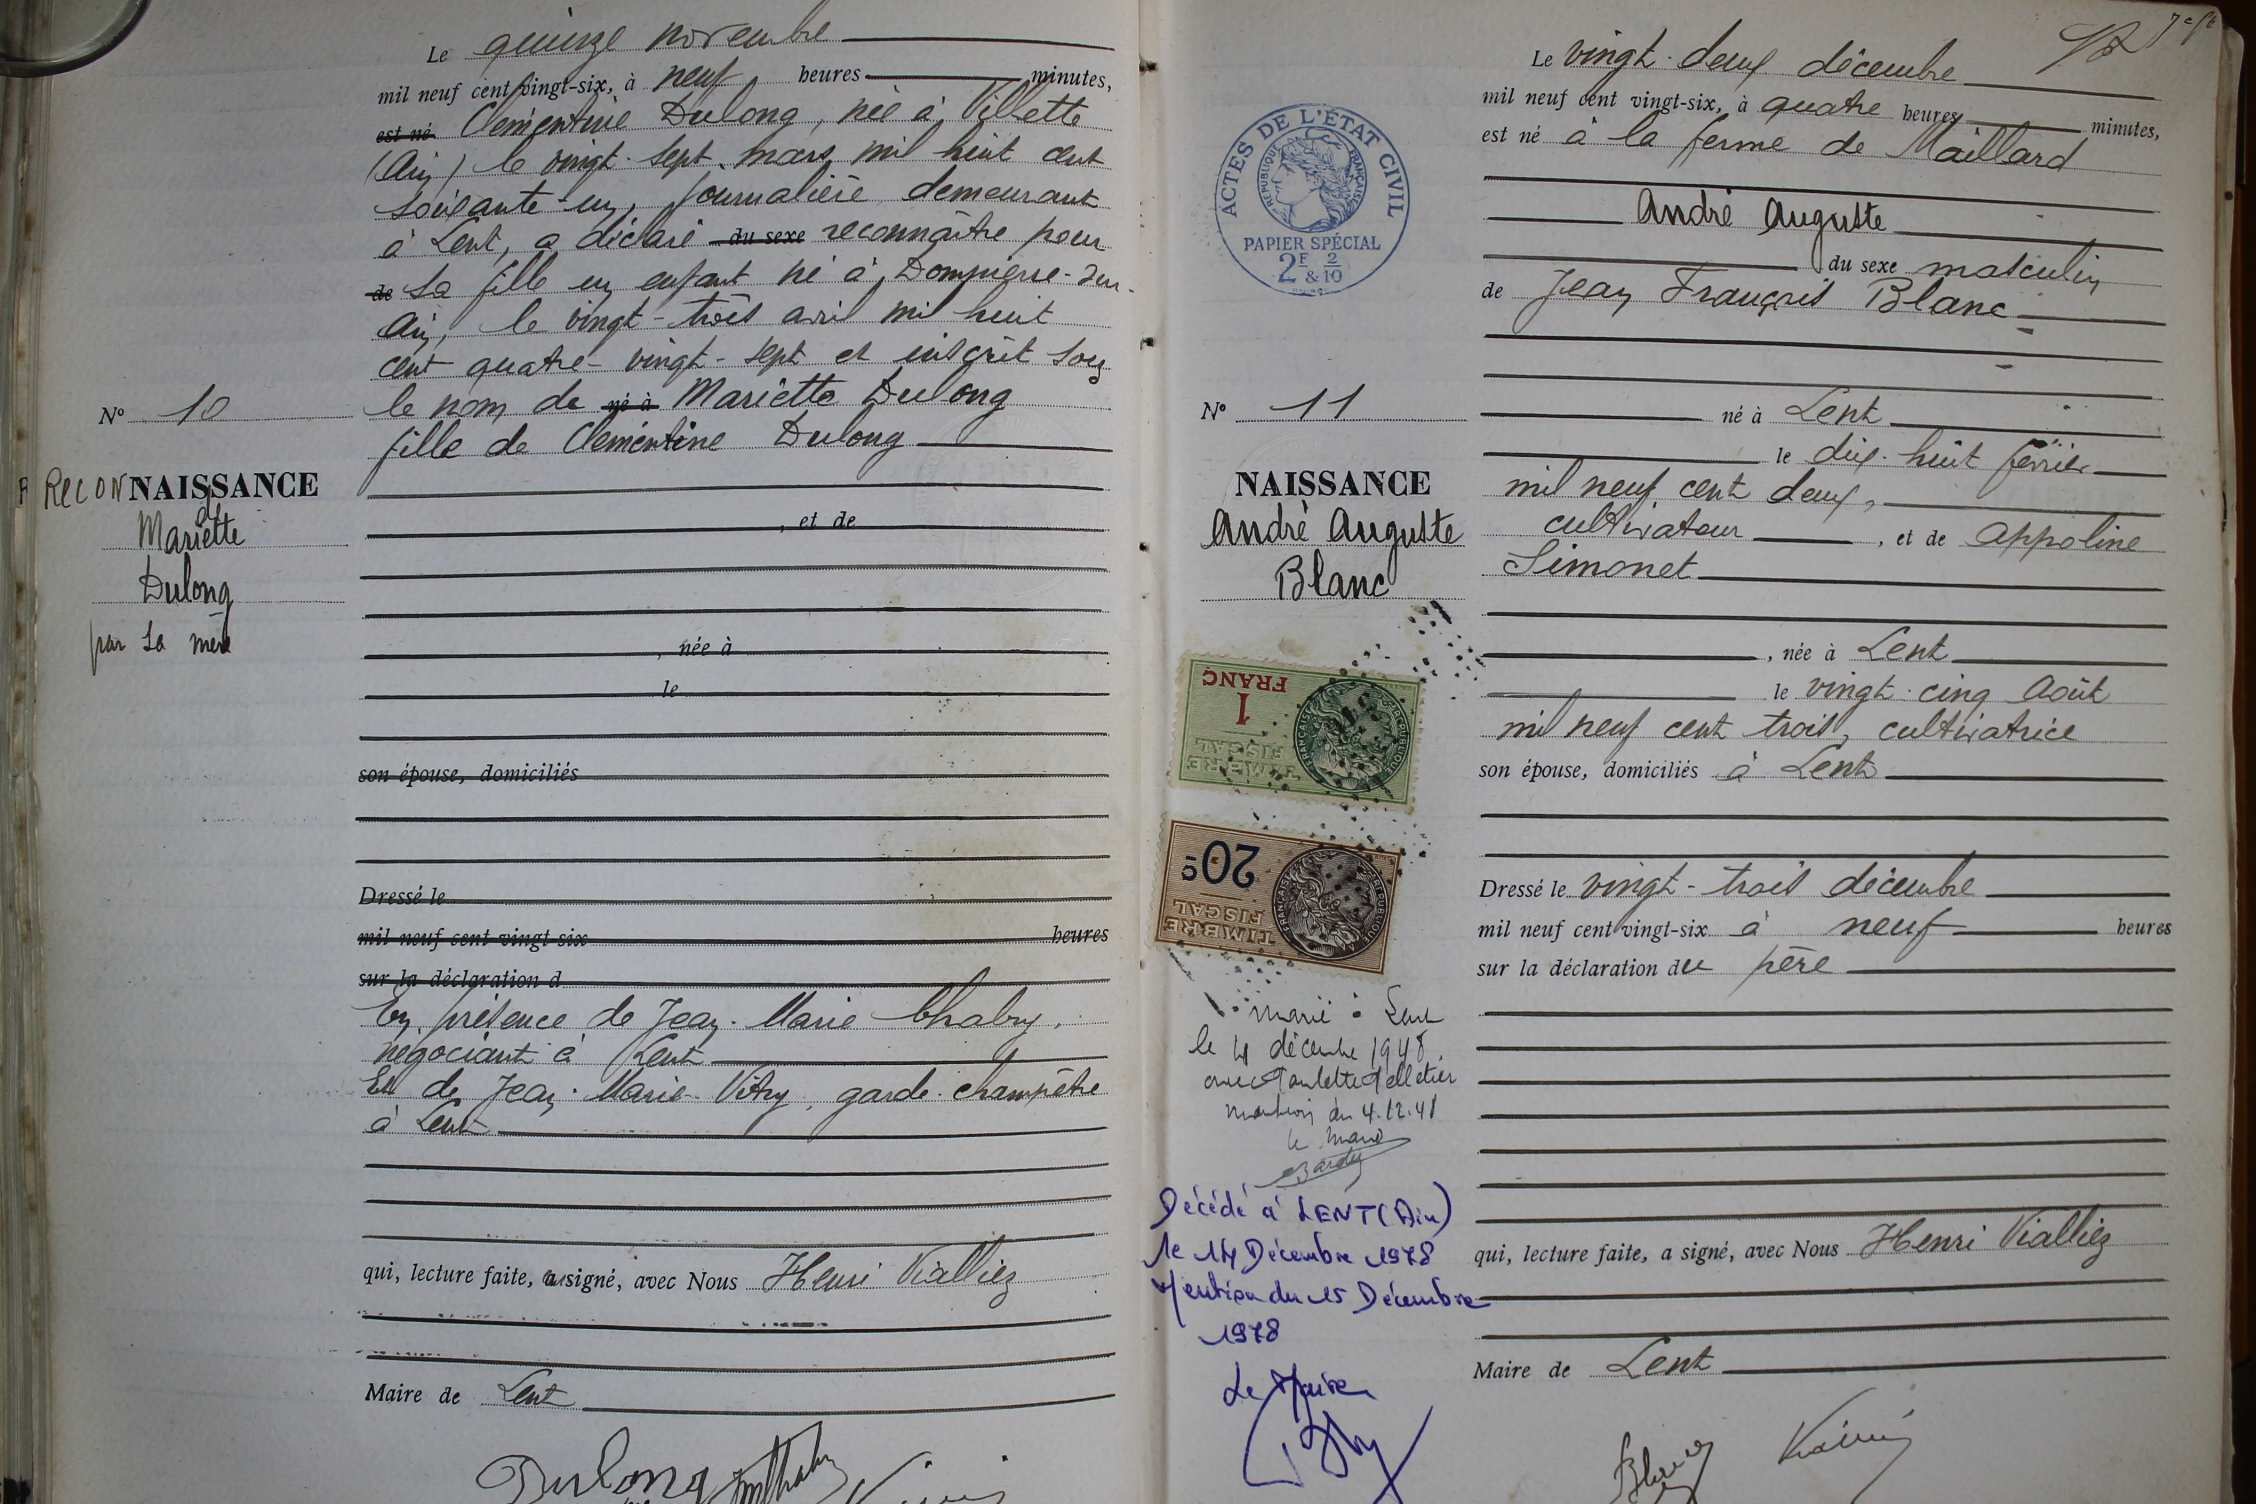 Le quinze novembre
mil neuf cent vingt-six, à neuf heures minutes,
est né Clémentine Dulong, née à Villette
(Ain) le vingt-sept mars mil huit cent
soixante-un, journalière demeurant
à Lent, a déclaré du sexe reconnaître pour
de sa fille un enfant né à Dompierre-sur-
Ain, le vingt-trois avril mil huit
cent quatre-vingt-sept et inscrit sous
le nom de né à Mariette Dulong
fille de Clémentine Dulong
N° 10
RECONNAISSANCE
d
Mariette
Dulong
par sa mère
, et de
, née à
le
son épouse, domiciliés
Dressé le
mil neuf cent vingt-six heures
sur la déclaration d
En présence de Jean-Marie Chabry,
négociant à Lent
Et de Jean-Marie Vitry, garde-champêtre
à Lent
qui, lecture faite, a signé, avec Nous Henri Vialliez
Maire de Lent
Dulong
7e ft
Le vingt-deux décembre
mil neuf cent vingt-six, à quatre heures minutes,
est né à la ferme de Maillard
André Auguste
du sexe masculin
de Jean François Blanc
né à Lent
le dix-huit février
mil neuf cent deux,
cultivateur, et de Appoline
Simonet
, née à Lent
le vingt-cinq Août
mil neuf cent trois, cultivatrice
son épouse, domiciliés à Lent
Dressé le vingt-trois décembre
mil neuf cent vingt-six à neuf heures
sur la déclaration du père
qui, lecture faite, a signé, avec Nous Henri Vialliez
Maire de Lent
ACTES DE L'ÉTAT CIVIL
RÉPUBLIQUE FRANÇAISE
PAPIER SPÉCIAL
2F & 2/10
N° 11
NAISSANCE
André Auguste
Blanc
1
FRANC
TIMBRE
FISCAL
RÉPUBLIQUE FRANÇAISE
20c
TIMBRE
FISCAL
RÉPUBLIQUE FRANÇAISE
marié à Lent
le 4 décembre 1948
avec Paulette Pelletier
mention du 4.12.48
le maire
Décédé à LENT (Ain)
le 14 Décembre 1978
Mention du 15 Décembre
1978
Le Maire
Blanc